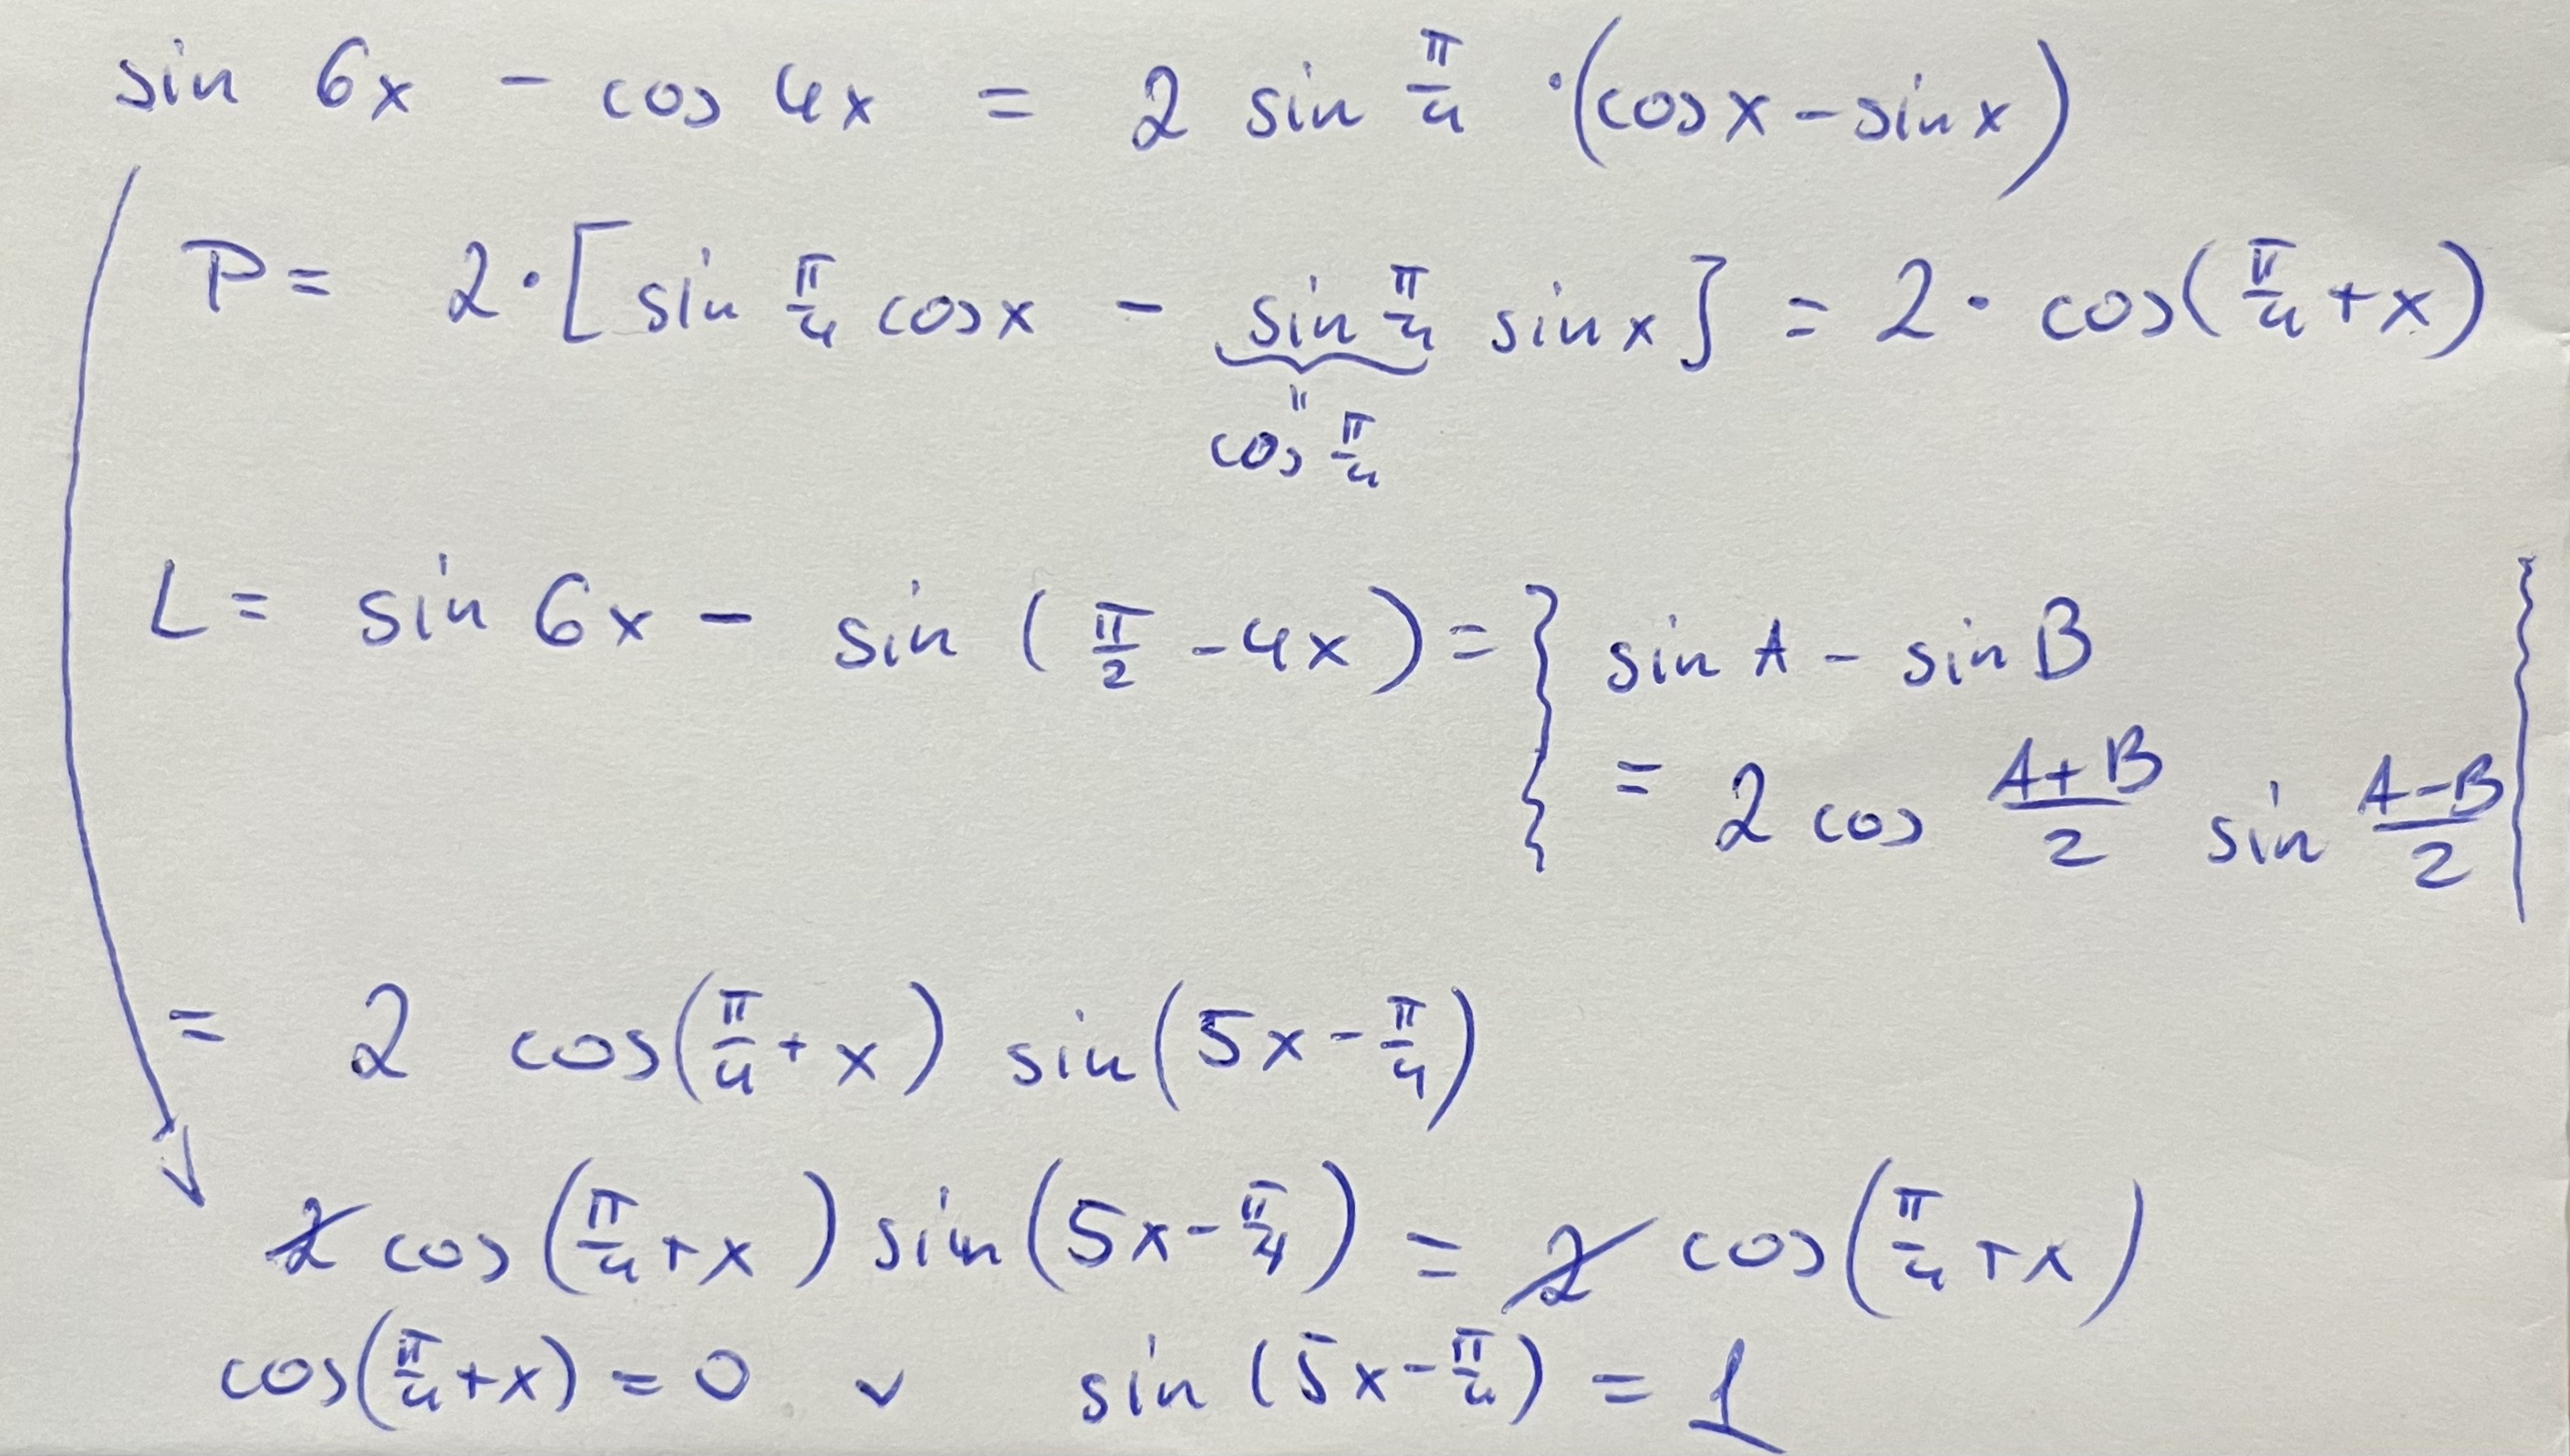 sin 6x - cos 4x = 2 sin π/4 · (cos x - sin x)
P = 2 · [sin π/4 cos x - sin π/4 sin x] = 2 · cos(π/4 + x)
"
cos π/4
L = sin 6x - sin (π/2 - 4x) = { sin A - sin B
= 2 cos (A+B)/2 sin (A-B)/2 }
= 2 cos(π/4 + x) sin(5x - π/4)
2 cos(π/4 + x) sin(5x - π/4) = 2 cos(π/4 + x)
cos(π/4 + x) = 0 ∨ sin (5x - π/4) = 1